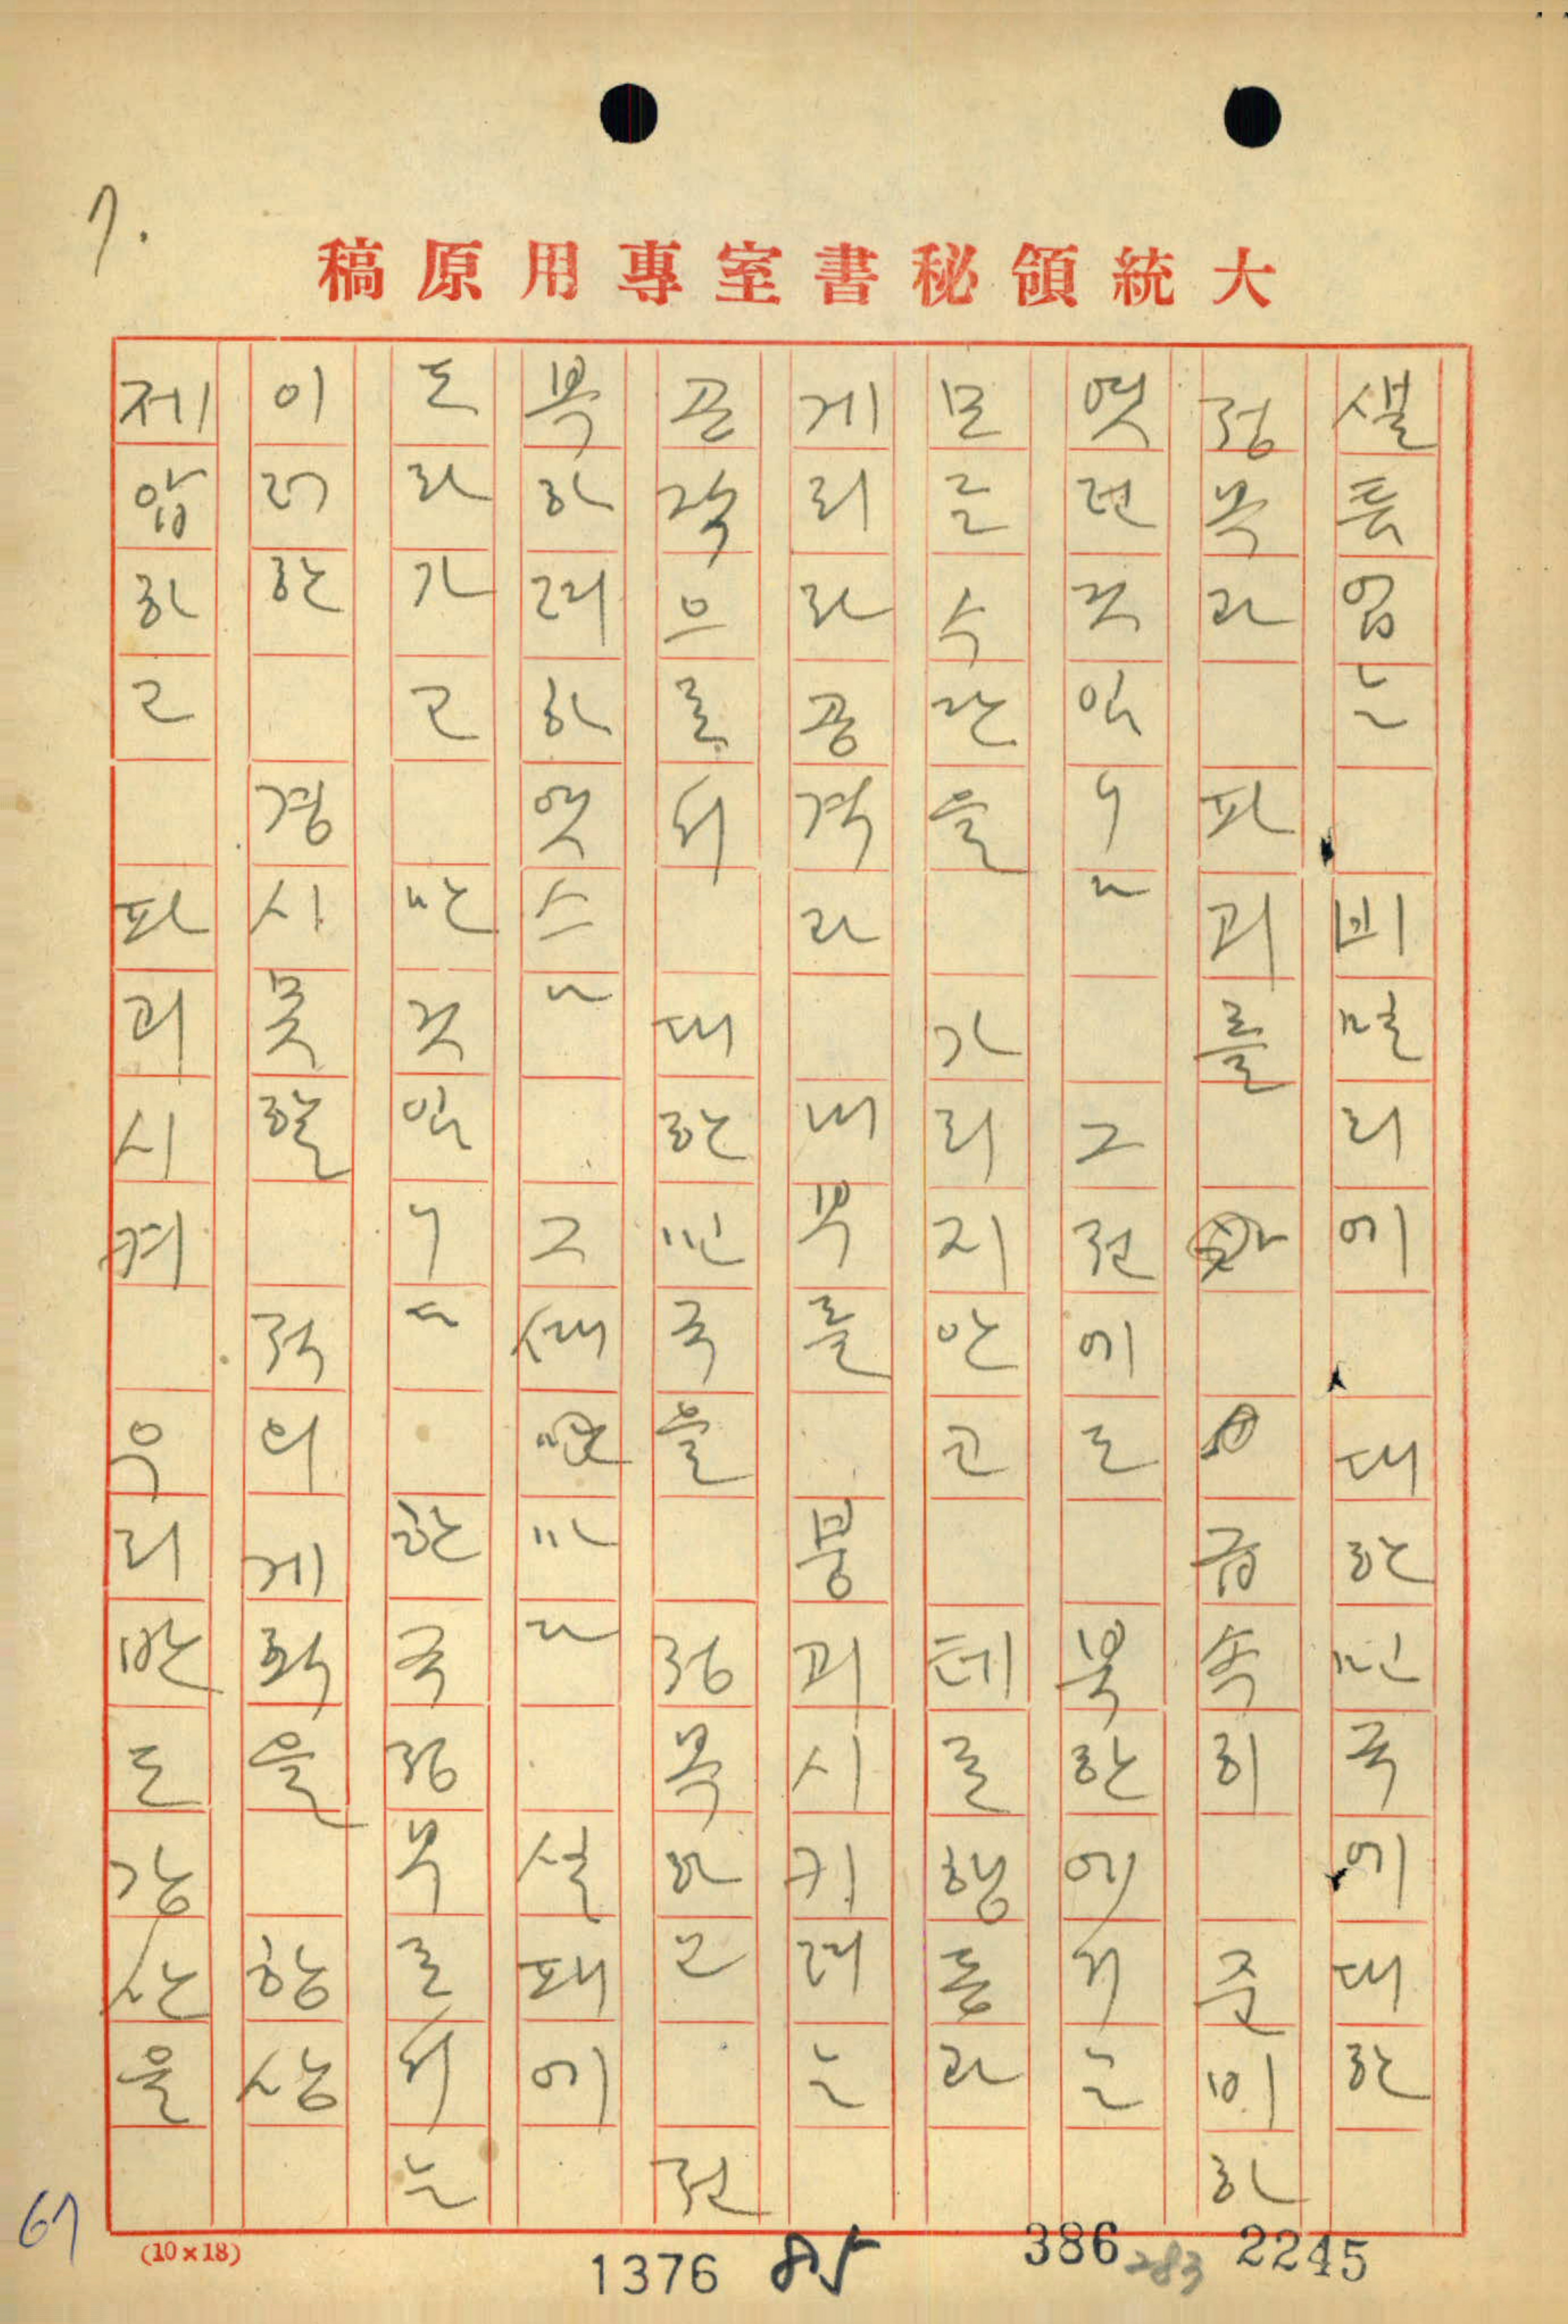 7.
大統領秘書室專用原稿
샐틈업는 비밀리에 대한민국에대한
정복과 파괴를 급속히 준비하
엿던것임니다 그전에도 북한에서는
모든수단을 가리지안고 테로행동과
게리라공격과 내부를 붕괴시키려는
공작으로써 대한민국을 정복하고 전
복하려하엿스나 그때마다 실패에
도라가고 만것임니다 한국정부로써는
이러한 경시못할 적의게획을 항상
제압하고 파괴시켜 우리반도강산을
67
(10×18)
1376
85
386
283
2245